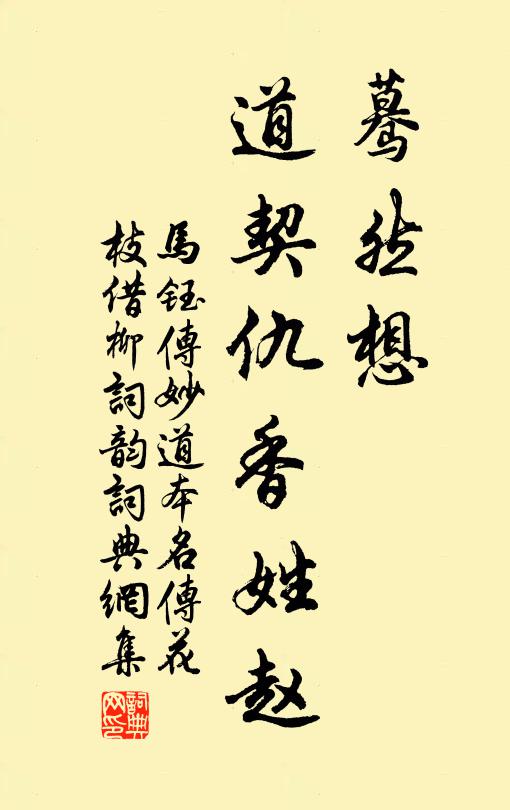 蓦然想
道契仇香姓赵
馬鈺傳妙道本名傳花
枝借柳詞韵詞典網集
詞典网印